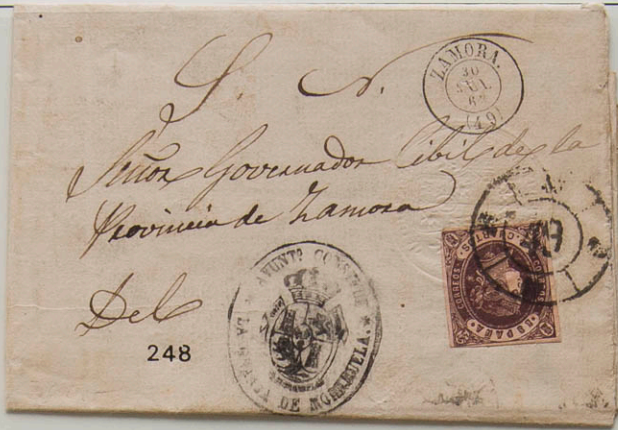 S. N.
ZAMORA.
30
JUL
62
(49)
Señor Governador Cibil de la
Provincia de Zamora
Del
248
AYUNTO. CONSTL. DE
LA GRANJA DE MORERUELA.
49
CUATRO CUARTOS
CORREOS
ESPAÑA